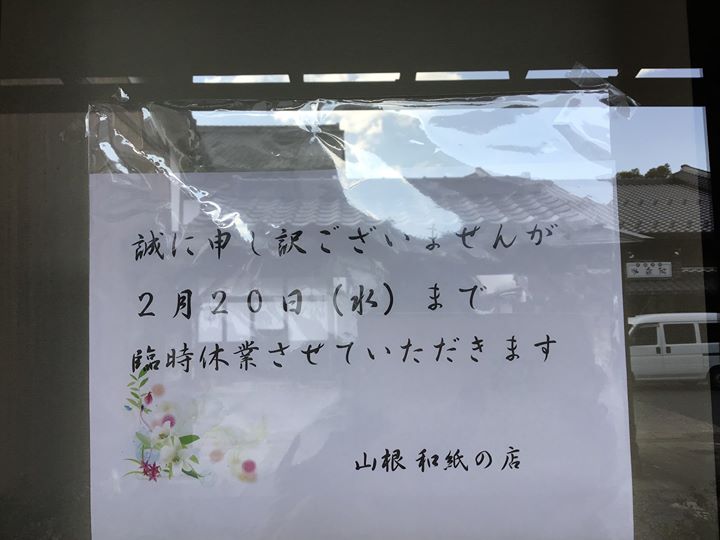 誠に申し訳ございませんが
2月20日(水)まで
臨時休業させていただきます
山根和紙の店